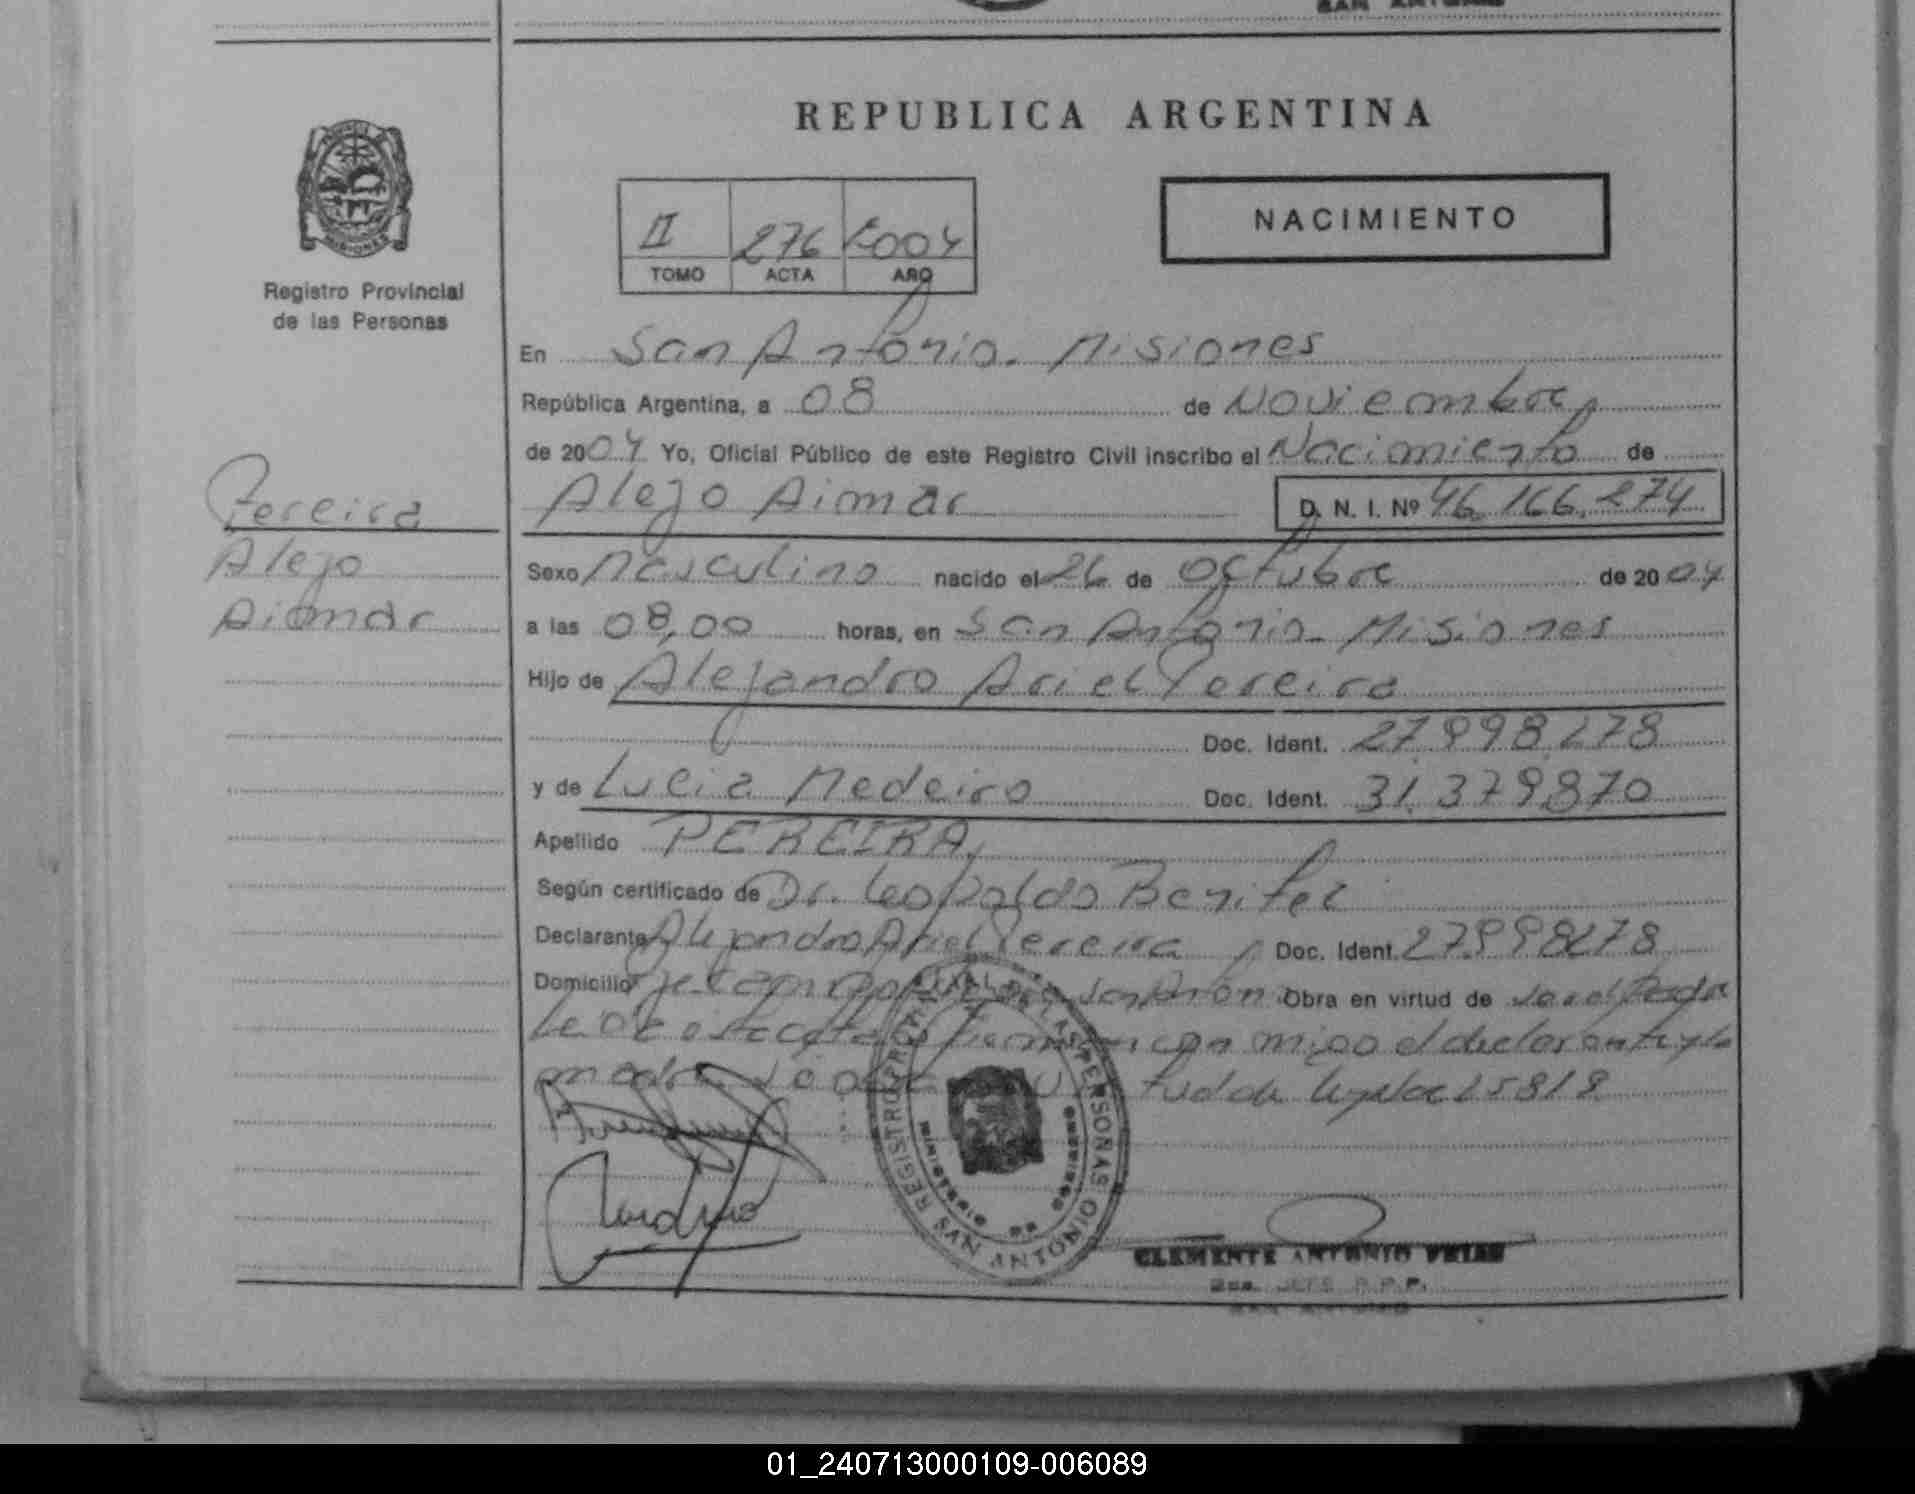 SAN ANTONIO
REPUBLICA ARGENTINA
II 276 2004
TOMO ACTA AÑO
NACIMIENTO
MISIONES
Registro Provincial
de las Personas
Pereira
Alejo
Aimar
En San Antonio. Misiones
República Argentina, a 08 de Noviembre
de 2004 Yo, Oficial Público de este Registro Civil inscribo el Nacimiento de
Alejo Aimar D. N. I. Nº 46.166.274
Sexo Masculino nacido el 26 de Octubre de 2004
a las 08,00 horas, en San Antonio. Misiones
Hijo de Alejandro Ariel Pereira
Doc. Ident. 27.998.278
y de Lucia Medeiro Doc. Ident. 31.379.870
Apellido PEREIRA
Según certificado de Dr. Leopoldo Benitez
Declarante Alejandro Ariel Pereira Doc. Ident. 27.998278
Domicilio San Anton Obra en virtud de
con migo el declarante y la
madre virtud de 15818
REGISTRO PROVINCIAL DE LAS PERSONAS
SAN ANTONIO
MINISTERIO DE GOBIERNO
CLEMENTE ANTONIO
JEFE R.P.P.
SAN ANTONIO
01_240713000109-006089